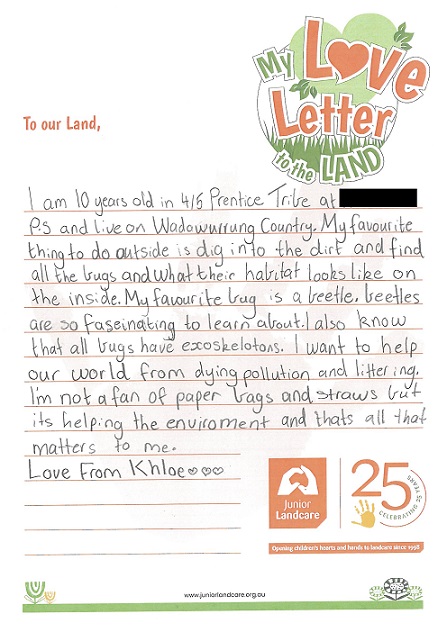 My Love
Letter
to the LAND
To our Land,
I am 10 years old in 4/5 Prentice Tribe at
P.S and live on Wadawurrung Country. My favourite
thing to do outside is dig into the dirt and find
all the bugs and what their habitat looks like on
the inside. My favourite bug is a beetle. beetles
are so faseinating to learn about. I also know
that all bugs have exoskeletons. I want to help
our world from dying pollution and littering.
I'm not a fan of paper bags and straws but
its helping the enviroment and thats all that
matters to me.
Love From Khloe
Junior
Landcare
25
CELEBRATING 25 YEARS
Opening children's hearts and hands to landcare since 1998
www.juniorlandcare.org.au